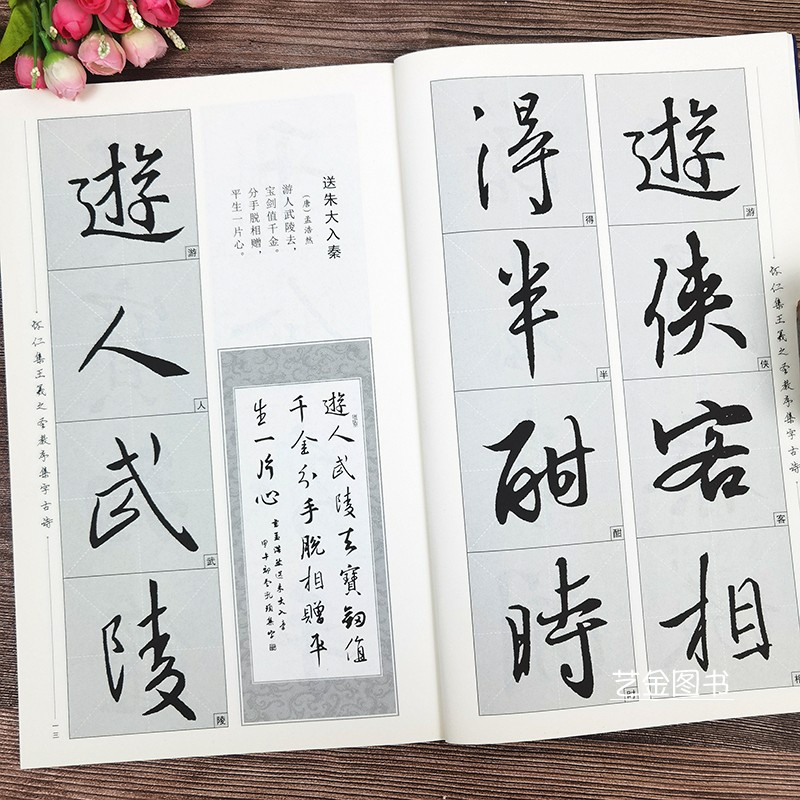 怀仁集王羲之圣教序集字古诗
遊侠客相
游
侠
客
相
得半酣時
得
半
酣
时
送朱大入秦
(唐)孟浩然
游人武陵去，
宝剑值千金。
分手脱相赠，
平生一片心。
遊人武陵去寶劔值
千金分手脫相贈平
生一片心
孟浩然送朱大入秦
遊人武陵
游
人
武
陵
怀仁集王羲之圣教序集字古诗
一三
艺金图书